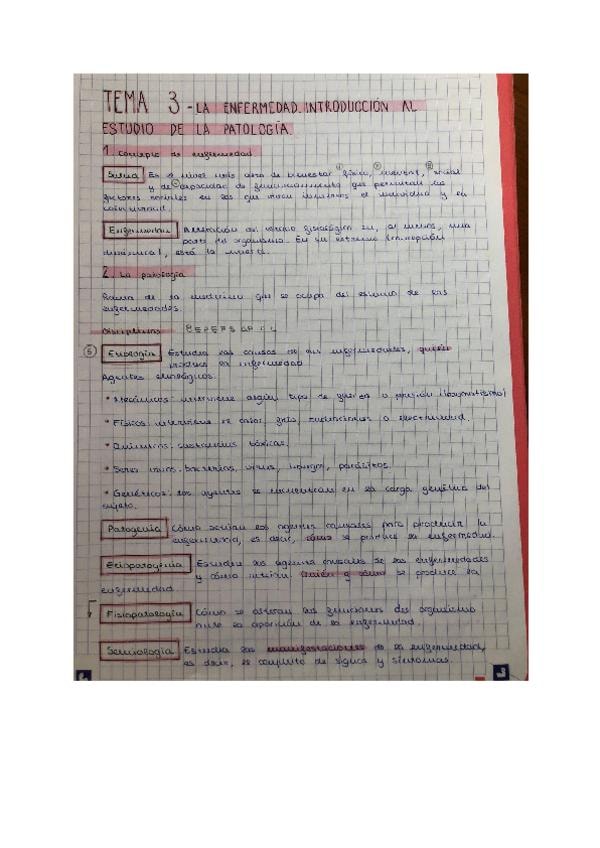 TEMA 3 - LA ENFERMEDAD. INTRODUCCIÓN AL
ESTUDIO DE LA PATOLOGÍA.
1. Concepto de enfermedad
Salud Es el nivel más alto de bienestar físico, mental, social
y de capacidad de funcionamiento que permitan los
factores sociales en los que viven inmersos el individuo y la
colectividad.
Enfermedad Alteración del estado fisiológico en, al menos, una
parte del organismo. En su extremo
, está la muerte.
2. La patología
Rama de la medicina que se ocupa del estudio de las
enfermedades.
Disciplinas
5 Etiología Estudia las causas de las enfermedades, quién
produce la enfermedad
Agentes etiológicos:
• Mecánicos: interviene algún tipo de fuerza o presión (traumatismo)
• Físicos: interviene el calor, frío, radiaciones o electricidad.
• Químicos: sustancias tóxicas.
• Seres vivos: bacterias, virus, hongos, parásitos.
• Genéticos: los agentes se encuentran en la carga genética del
sujeto.
Patogenia Cómo actúan los agentes causales para producir la
enfermedad, es decir, cómo se produce la enfermedad.
Etiopatogenia Estudia los agentes causales de las enfermedades
y cómo actúan. Quién y cómo se produce la
enfermedad.
Fisiopatología Cómo se alteran las funciones del organismo
ante la aparición de la enfermedad.
Semiología Estudia las manifestaciones de la enfermedad,
es decir, el conjunto de signos y síntomas.